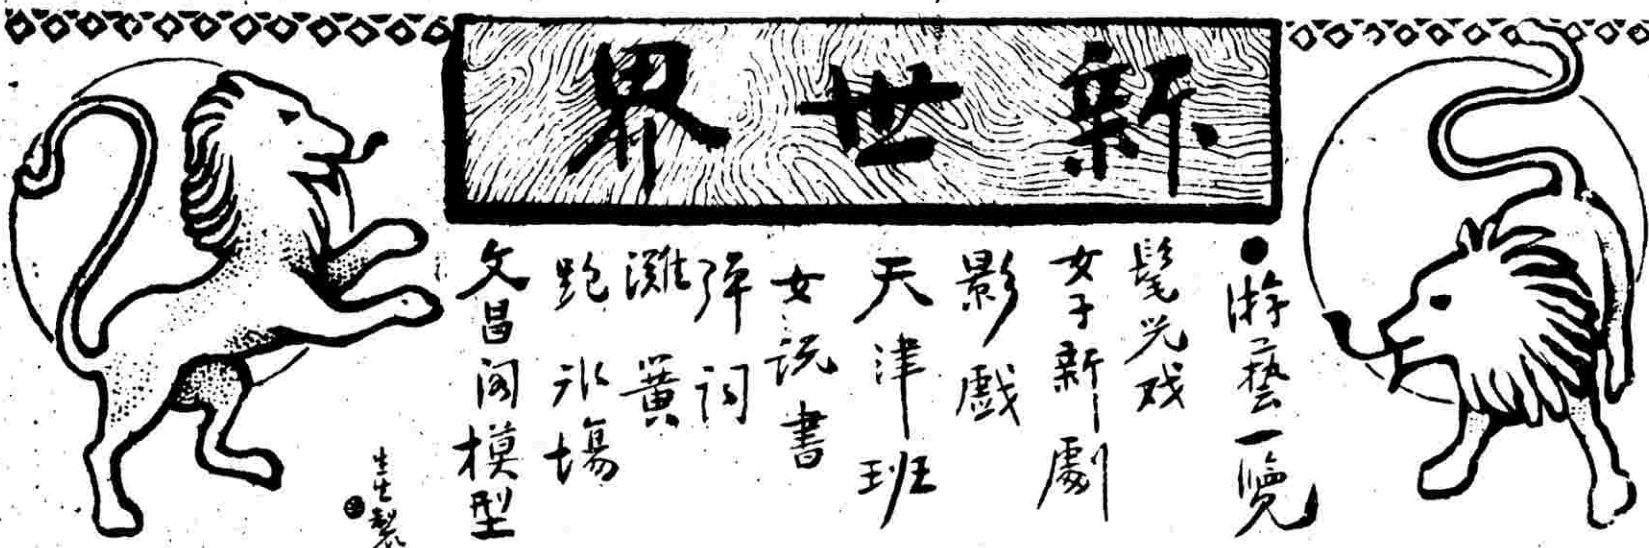 新世界
●游藝一覽
髦児戏
女子新劇
影戲
天津班
女说書
弹词
灘簧
跑冰場
文昌阁模型
生生製